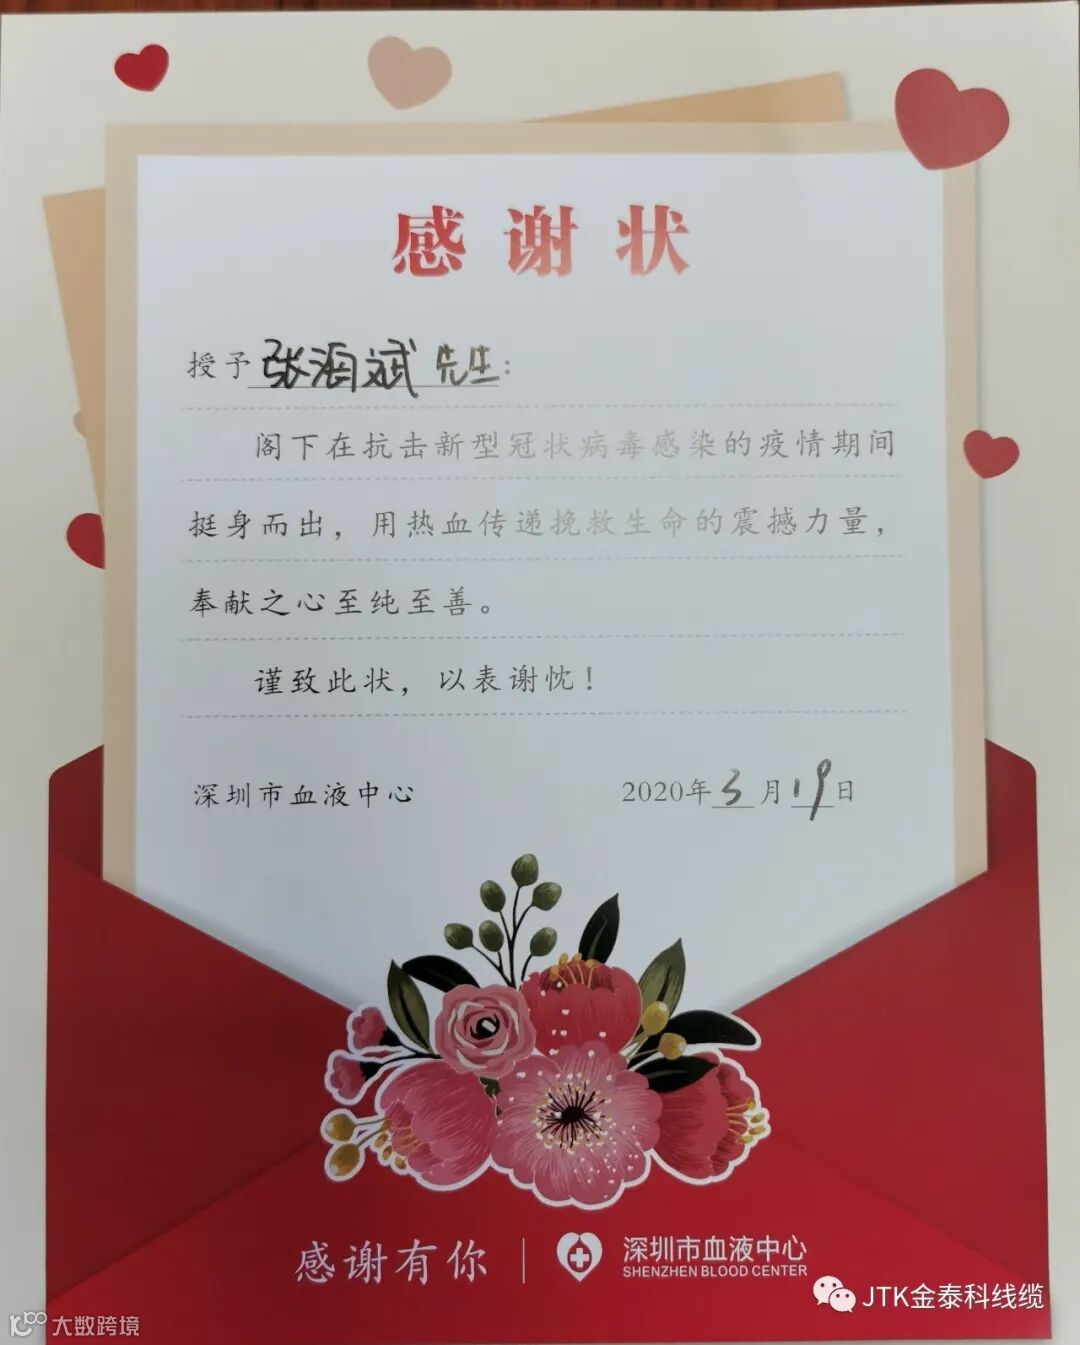 感谢状
授予张海斌先生:
阁下在抗击新型冠状病毒感染的疫情期间
挺身而出，用热血传递挽救生命的震撼力量，
奉献之心至纯至善。
谨致此状，以表谢忱！
深圳市血液中心 2020年3月19日
感谢有你 深圳市血液中心
SHENZHEN BLOOD CENTER
JTK金泰科线缆
大数跨境